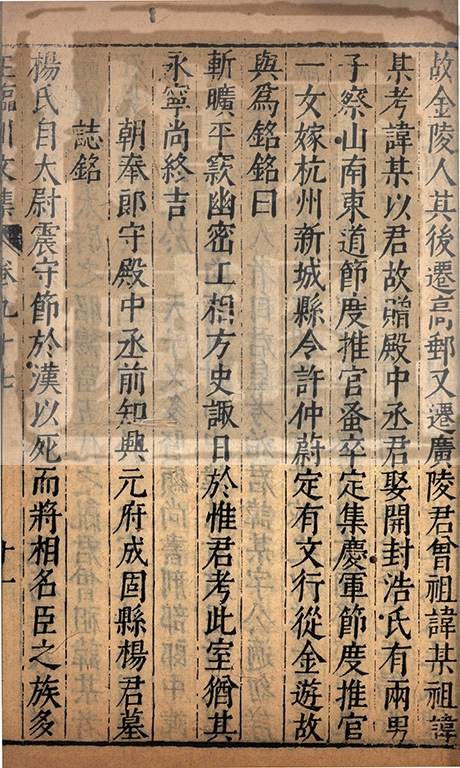 故金陵人其後遷高郵又遷廣陵君曾祖諱某祖諱
某考諱某以君故贈殿中丞君娶開封浩氏有兩男
子察山南東道節度推官蚤卒定集慶軍節度推官
一女嫁杭州新城縣令許仲蔚定有文行從金遊故
與爲銘銘曰
斬曠平窽幽密工相方史諏日於惟君考此室猶其
永寧尚終吉
朝奉郎守殿中丞前知興元府成固縣楊君墓
誌銘
楊氏自太尉震守節於漢以死而將相名臣之族多
王臨川文集 卷九十七 十一